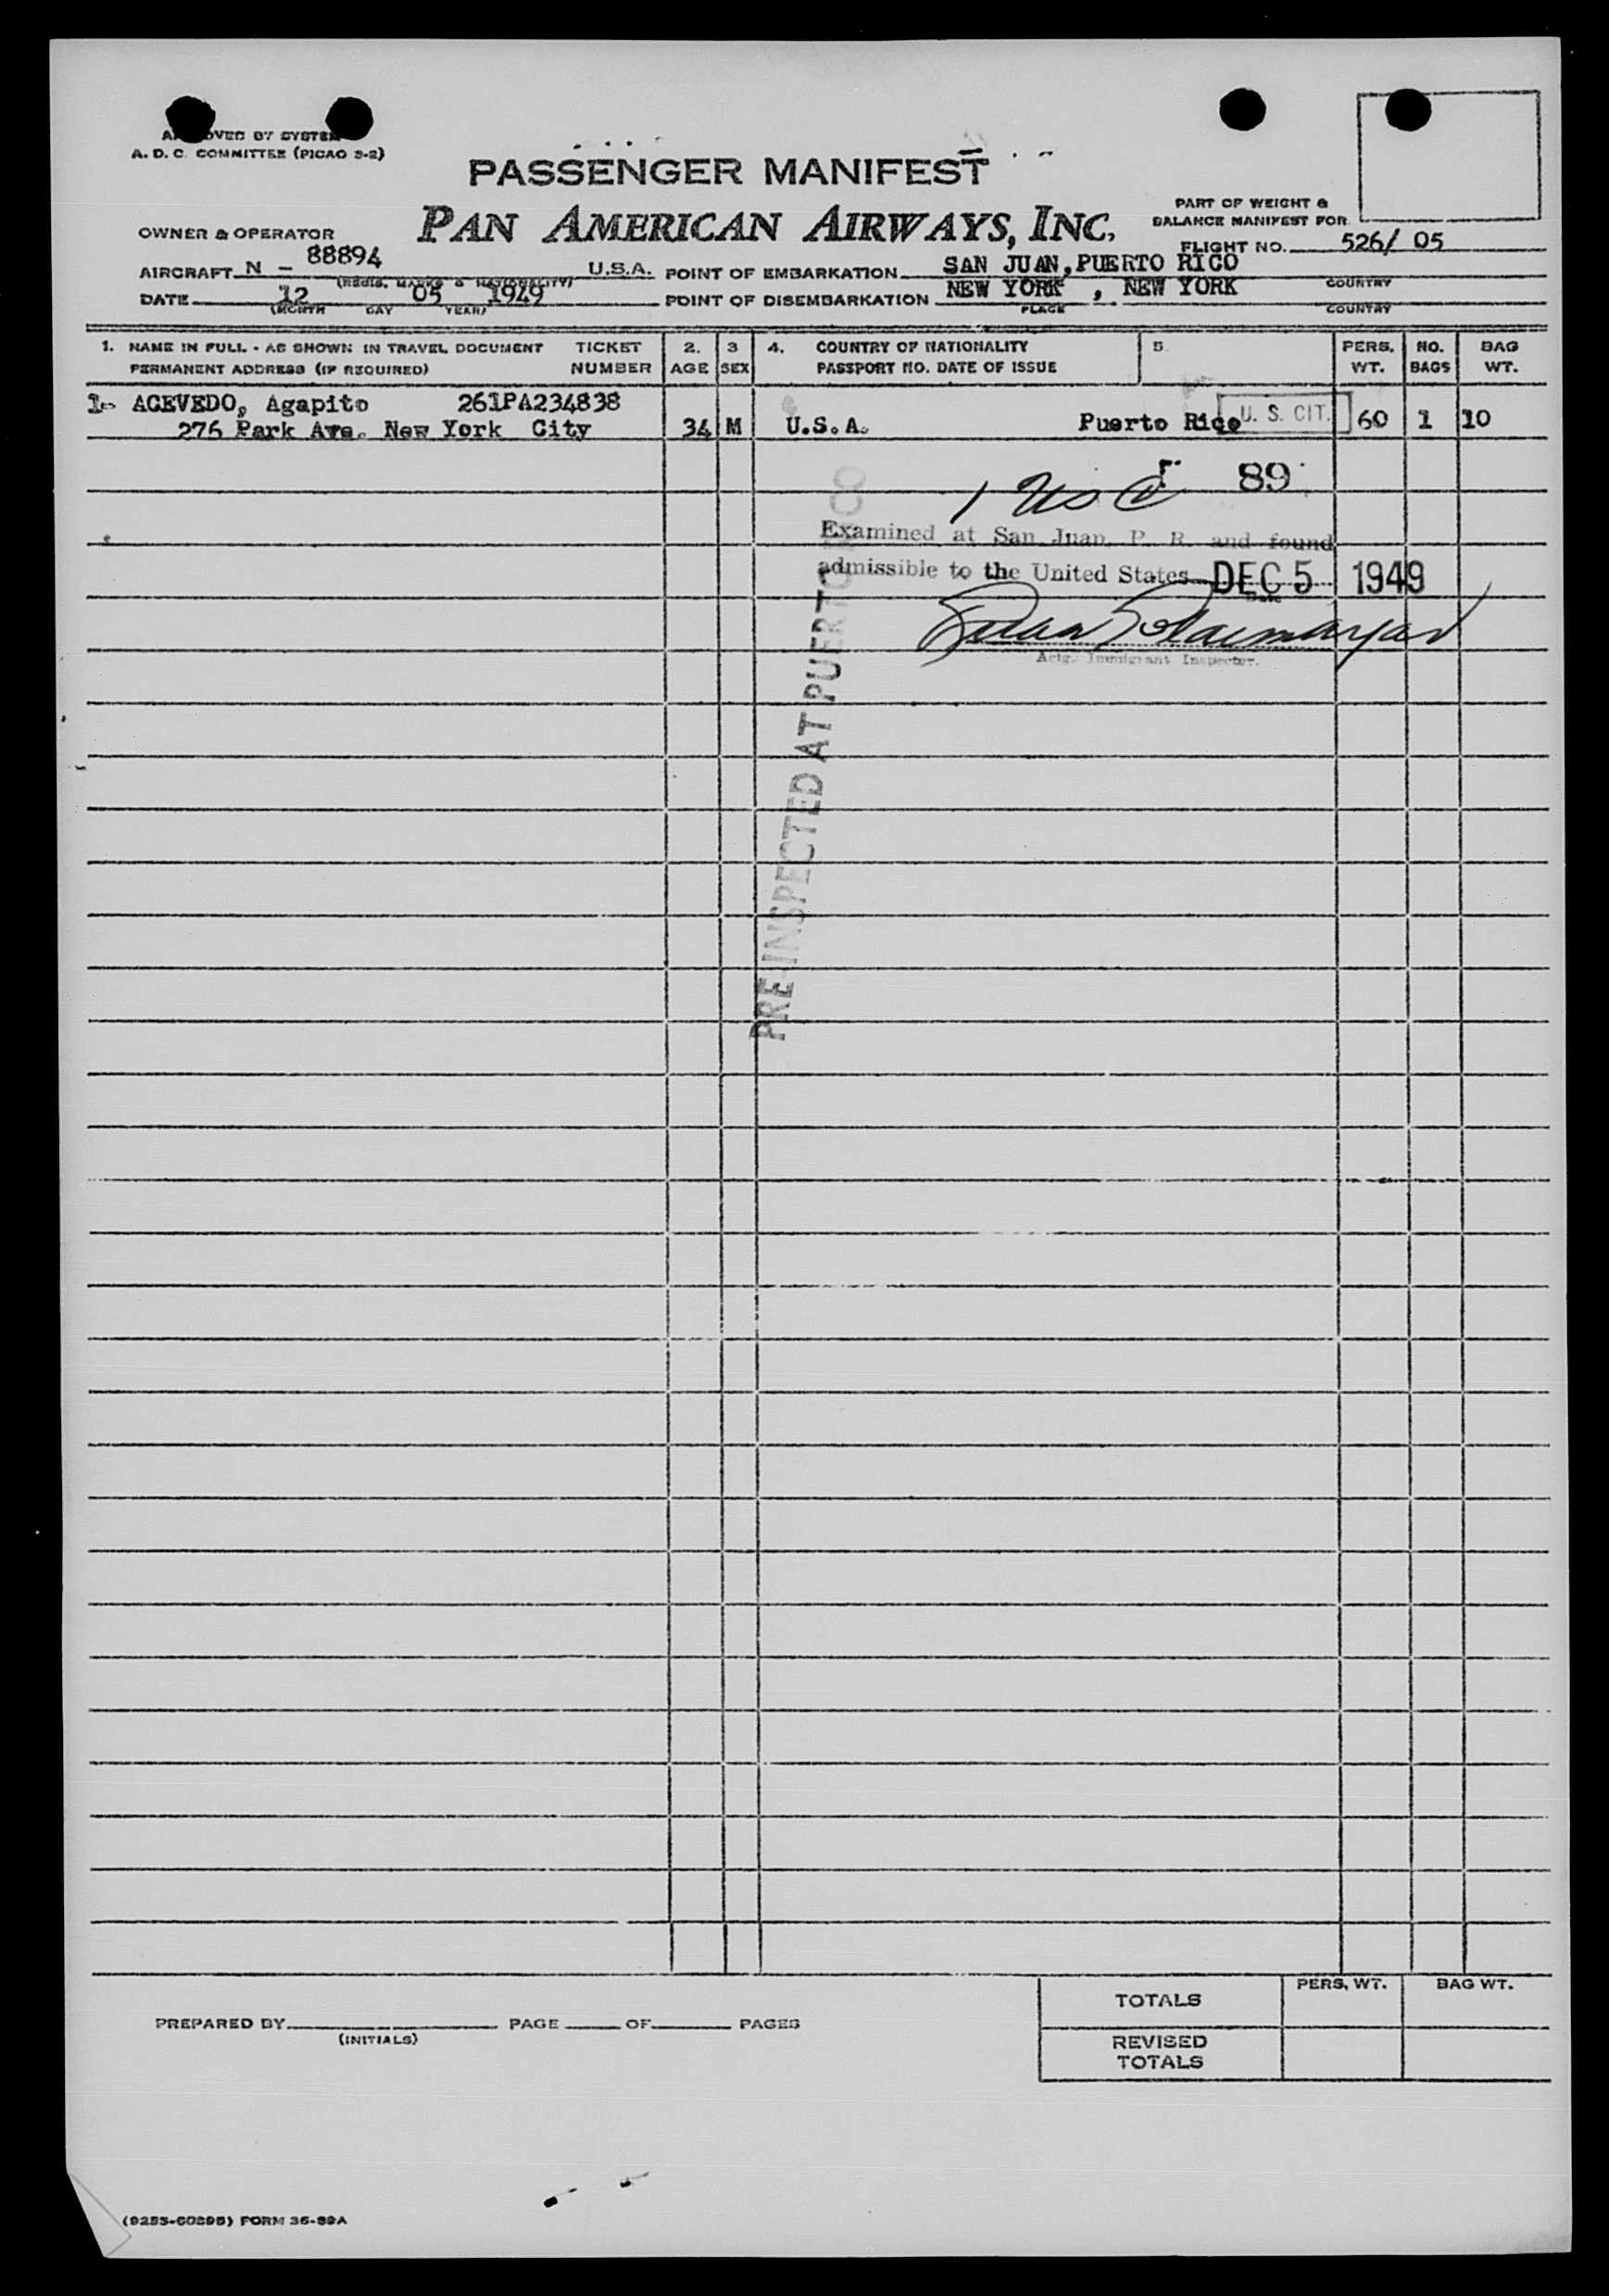 A. D. C. COMMITTEE (PICAO S-2)
PASSENGER MANIFEST
PAN AMERICAN AIRWAYS, INC.
PART OF WEIGHT &
BALANCE MANIFEST FOR
OWNER & OPERATOR
FLIGHT NO. 526/ 05
AIRCRAFT N - 88894 U.S.A. POINT OF EMBARKATION SAN JUAN, PUERTO RICO
(REGIS. MARKS & NATIONALITY) COUNTRY
DATE 12 05 1949 POINT OF DISEMBARKATION NEW YORK , NEW YORK
(MONTH DAY YEAR) PLACE COUNTRY
1. NAME IN FULL - AS SHOWN IN TRAVEL DOCUMENT TICKET 2. 3 4. COUNTRY OF NATIONALITY 5 PERS. NO. BAG
PERMANENT ADDRESS (IF REQUIRED) NUMBER AGE SEX PASSPORT NO. DATE OF ISSUE WT. BAGS WT.
1- ACEVEDO, Agapito 261PA234838
276 Park Ave. New York City 34 M U.S.A. Puerto Rico U. S. CIT. 60 1 10
1 USC 89
Examined at San Juan, P. R. and found
admissible to the United States DEC 5 1949
Date
Actg. Immigrant Inspector.
PRE-INSPECTED AT PUERTO RICO
TOTALS PERS. WT. BAG WT.
PREPARED BY PAGE OF PAGES
(INITIALS)
REVISED
TOTALS
FORM 36-89A